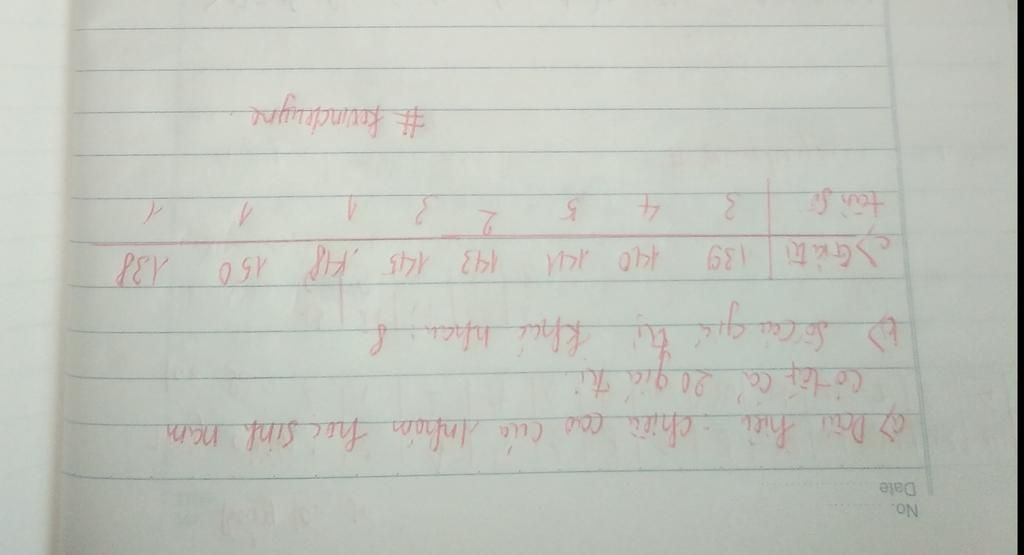 No.
Date
a) Dấu hiệu: chiều cao của 1 nhóm học sinh nam
Có tất cả 20 giá trị
b) Số các giá trị khác nhau: 8
c) Giá trị 139 140 141 143 145 148 150 138
tần số 3 4 5 2 3 1 1 1
# kevindruyne